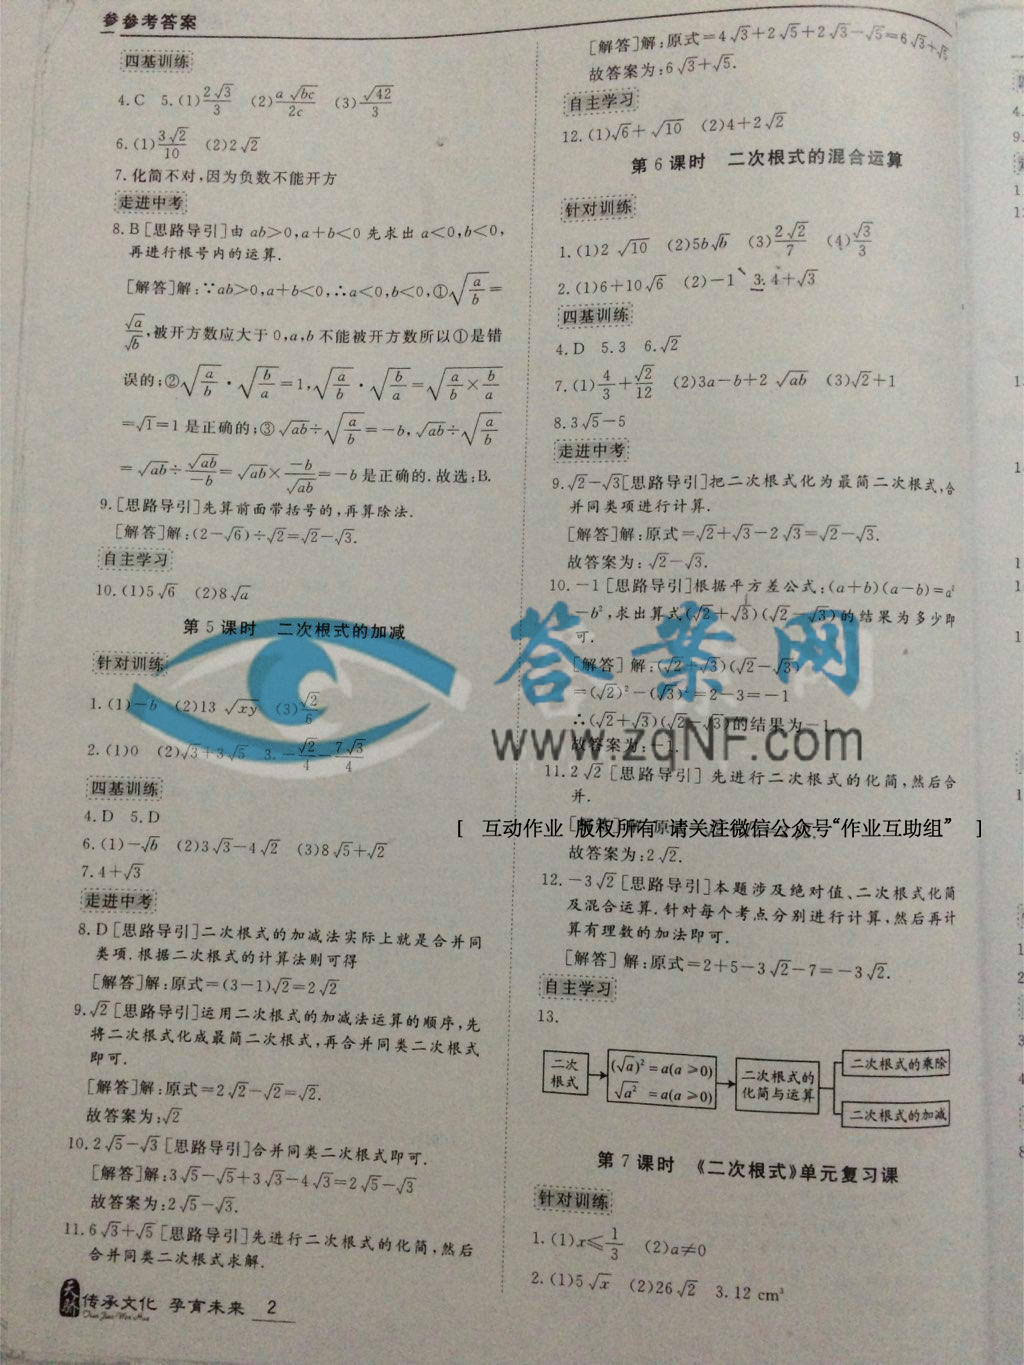 参参考答案
四基训练
4.C 5.(1)2√3/3 (2)a√bc/2c (3)√42/3
6.(1)3√2/10 (2)2√2
7.化简不对,因为负数不能开方
走进中考
8.B[思路导引]由 ab>0,a+b<0 先求出 a<0,b<0,
再进行根号内的运算.
[解答]解:∵ab>0,a+b<0,∴a<0,b<0,①√(a/b)=
√a/√b,被开方数应大于0,a,b不能被开方数所以①是错
误的;②√(a/b)·√(b/a)=1,√(a/b)·√(b/a)=√(a/b×b/a)
=√1=1是正确的;③√ab÷√(a/b)=-b,√ab÷√(a/b)
=√ab÷√ab/-b=√ab×-b/√ab=-b是正确的.故选:B.
9.[思路导引]先算前面带括号的,再算除法.
[解答]解:(2-√6)÷√2=√2-√3.
自主学习
10.(1)5√6 (2)8√a
第5课时 二次根式的加减
针对训练
1.(1)-b (2)13√xy (3)√2/6
2.(1)0 (2)√3+3√5 3.-√2/4-7√3/4
四基训练
4.D 5.D
6.(1)-√b (2)3√3-4√2 (3)8√5+√2
7.4+√3
走进中考
8.D[思路导引]二次根式的加减法实际上就是合并同
类项.根据二次根式的计算法则可得
[解答]解:原式=(3-1)√2=2√2
9.√2[思路导引]运用二次根式的加减法运算的顺序,先
将二次根式化成最简二次根式,再合并同类二次根式
即可.
[解答]解:原式=2√2-√2=√2.
故答案为:√2
10.2√5-√3[思路导引]合并同类二次根式即可.
[解答]解:3√5-√5+3√3-4√3=2√5-√3
故答案为:2√5-√3.
11.6√3+√5[思路导引]先进行二次根式的化简,然后
合并同类二次根式求解.
天骄 传承文化 孕育未来 2
[解答]解:原式=4√3+2√5+2√3-√5=6√3+√5
故答案为:6√3+√5.
自主学习
12.(1)√6+√10 (2)4+2√2
第6课时 二次根式的混合运算
针对训练
1.(1)2√10 (2)5b√b (3)2√2/7 (4)√3/3
2.(1)6+10√6 (2)-1 3.4+√3
四基训练
4.D 5.3 6.√2
7.(1)4/3+√2/12 (2)3a-b+2√ab (3)√2+1
8.3√5-5
走进中考
9.√2-√3[思路导引]把二次根式化为最简二次根式,合
并同类项进行计算.
[解答]解:原式=√2+√3-2√3=√2-√3.
故答案为:√2-√3.
10.-1[思路导引]根据平方差公式:(a+b)(a-b)=a²
-b²,求出算式(√2+√3)(√2-√3)的结果为多少即
可.
[解答]解:(√2+√3)(√2-√3)
=(√2)²-(√3)²=2-3=-1
∴(√2+√3)(√2-√3)的结果为-1
故答案为:-1.
答案网
www.zqNF.com
11.2√2[思路导引]先进行二次根式的化简,然后合
并.
[ 互动作业 版权所有 请关注微信公众号“作业互助组” ]
故答案为:2√2.
12.-3√2[思路导引]本题涉及绝对值、二次根式化简
及混合运算.针对每个考点分别进行计算,然后再计
算有理数的加法即可.
[解答]解:原式=2+5-3√2-7=-3√2.
自主学习
13.
二次
根式
(√a)²=a(a≥0)
√a²=a(a≥0)
二次根式的
化简与运算
二次根式的乘除
二次根式的加减
第7课时 《二次根式》单元复习课
针对训练
1.(1)x≤1/3 (2)a≠0
2.(1)5√x (2)26√2 3.12 cm³